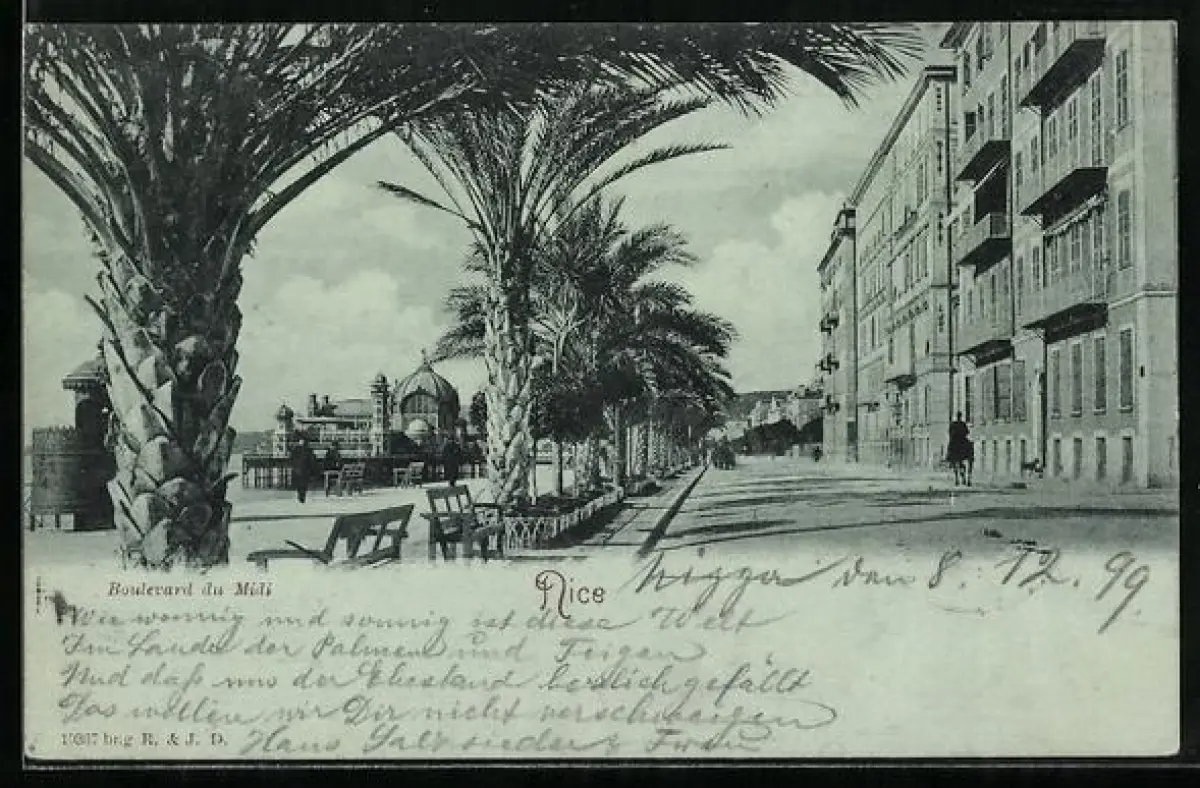 Boulevard du Midi
Nice
Nizza den 8. 12. 99
Wie wonnig und sonnig ist diese Welt
Im Lande der Palmen und Feigen
Und daß uns der Ehestand herzlich gefällt
Das wollen wir Dir nicht verschweigen
Hans & Frau
R. & J. D.